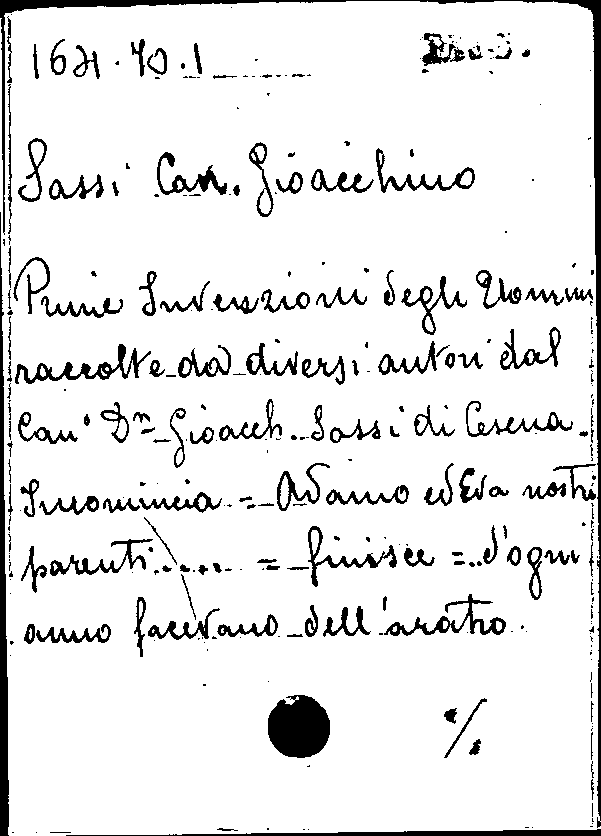 164.70.1
Sassi Can. Gioacchino
Prime Invenzioni degli Uomini
raccolte da diversi autori dal
Can.º Dⁿ Gioacch. Sassi di Cesena.
Incomincia = Adamo ed Eva nostri
parenti..... = finisce = d'ogni
anno facevano dell'aratro.
%